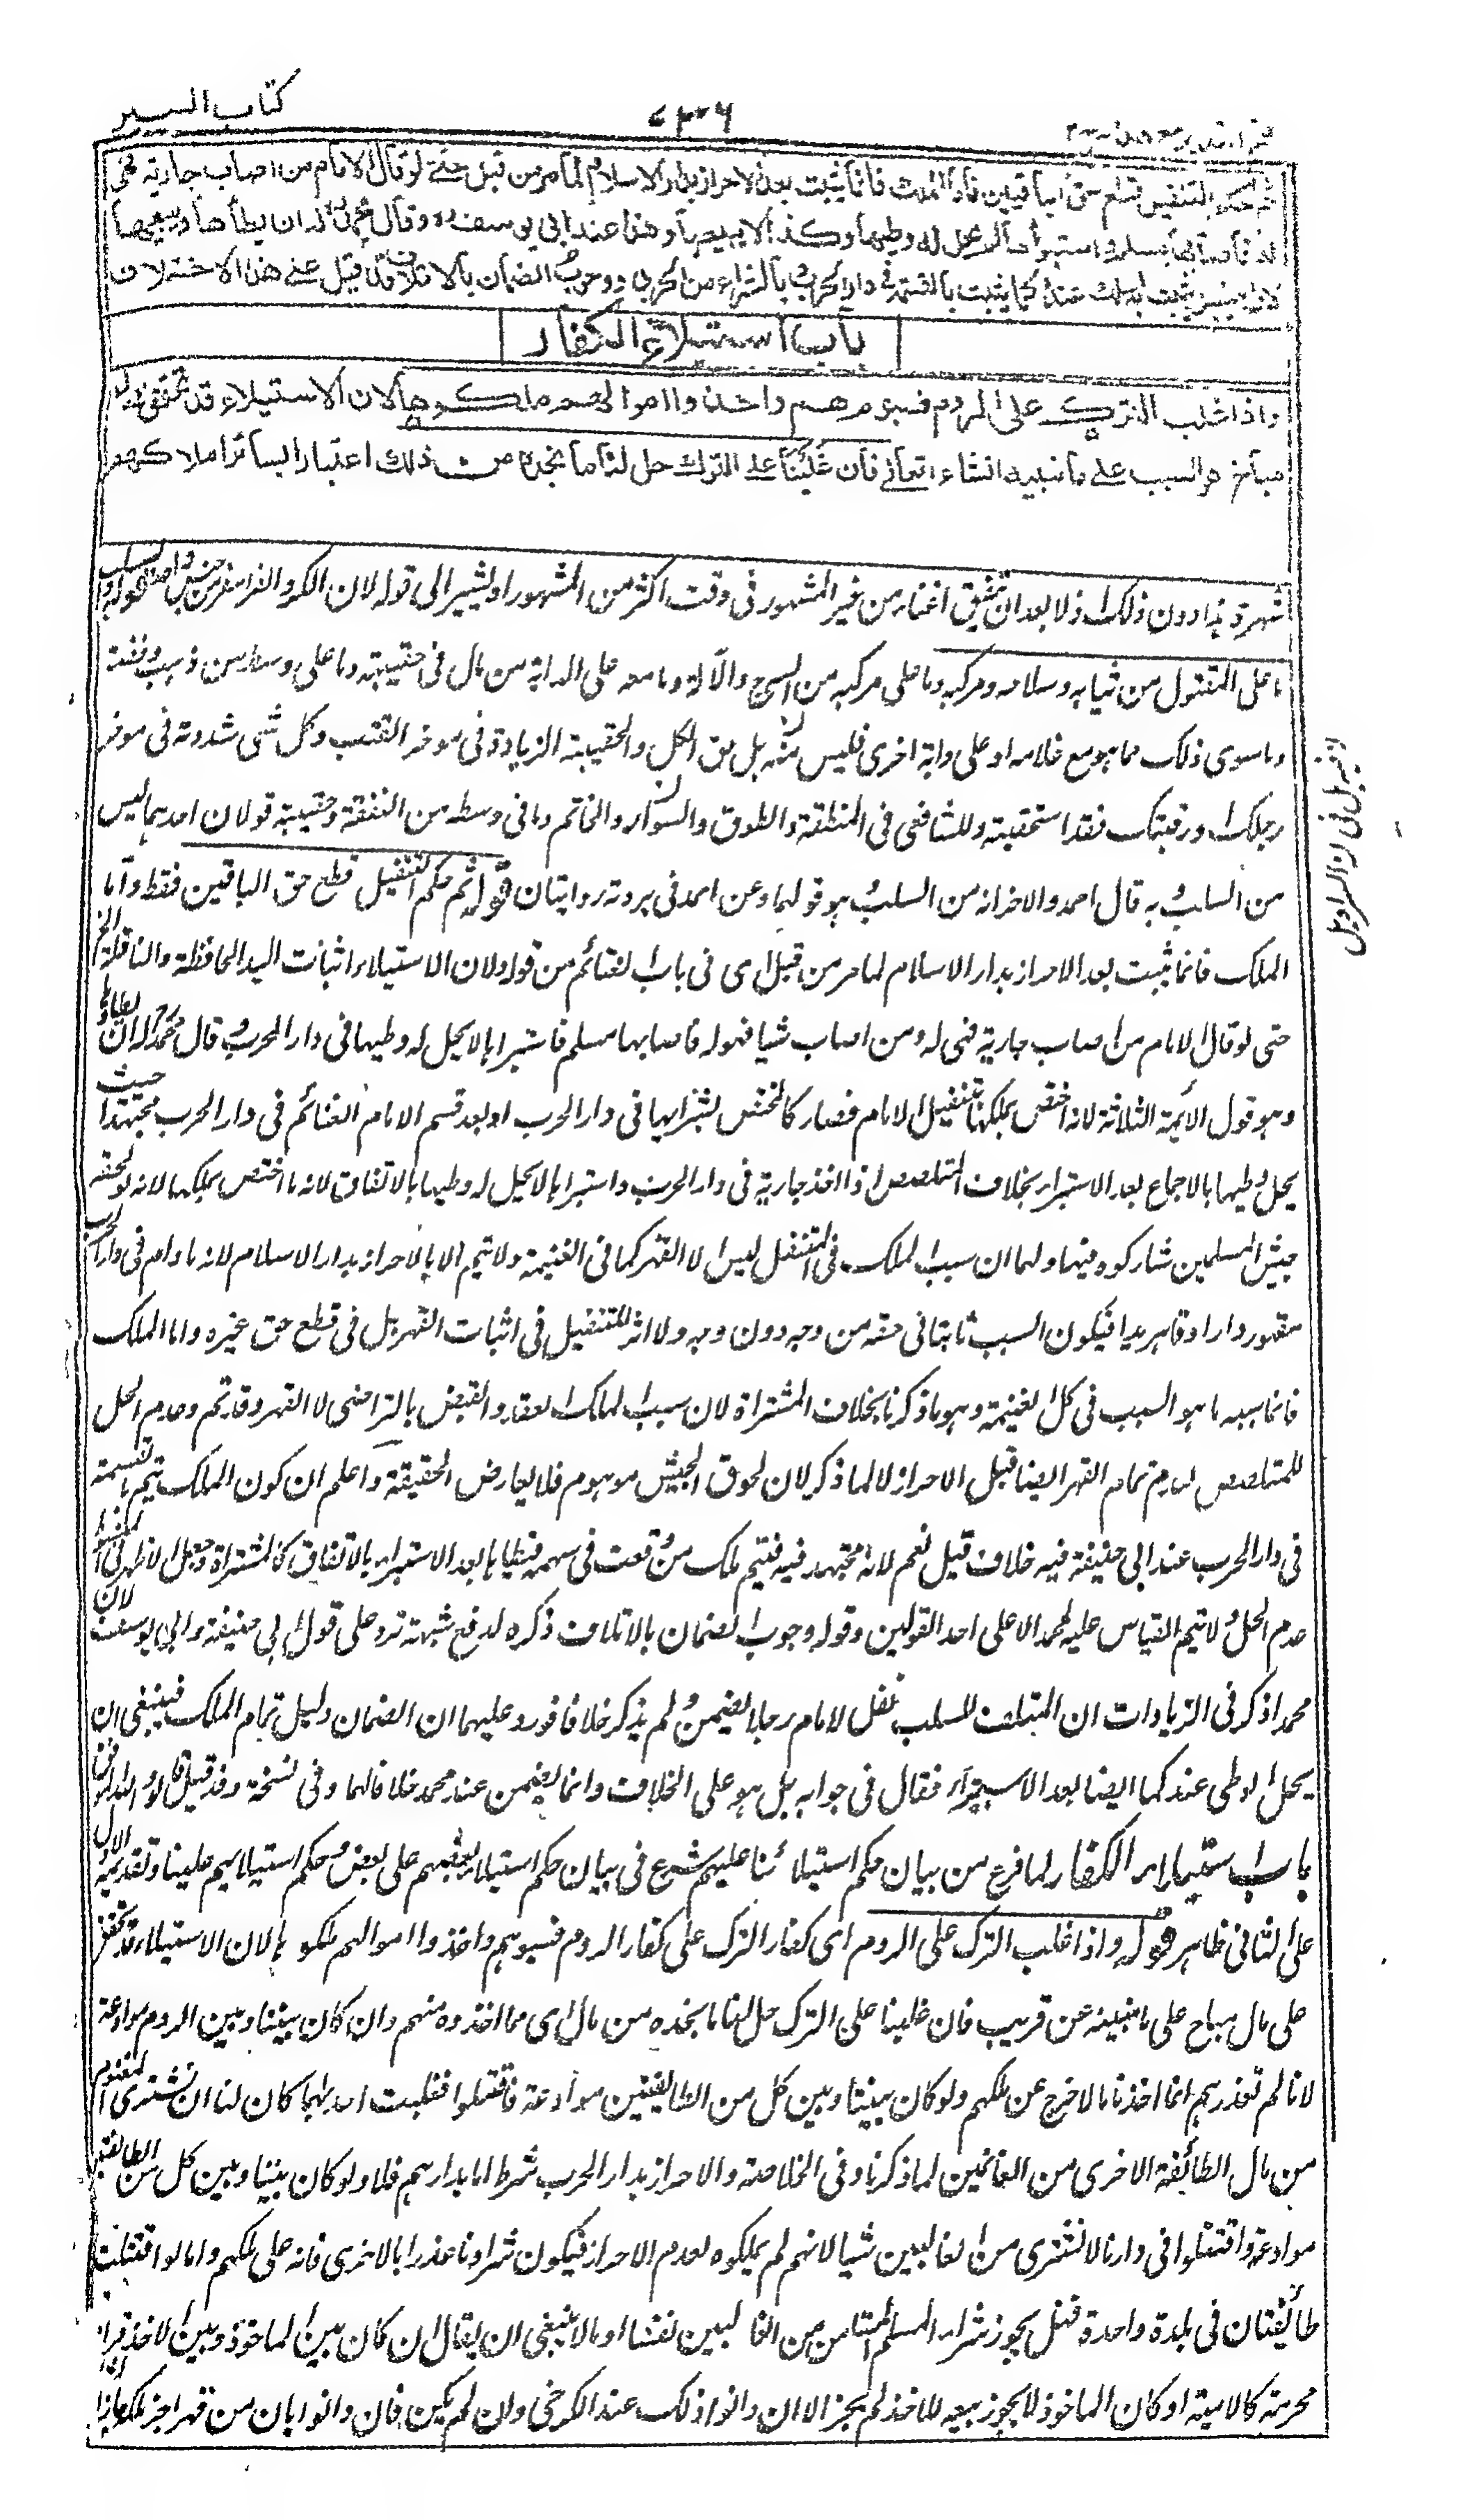 كتاب السير
۷۳۶
ثم حكم التنفيل قطع حق الباقين فأما الملك فانما يثبت بعد الاحراز بدار الاسلام لما مر من قبل حتى لو قال الامام من اصاب جارية فهي
له فأصابها مسلم واستبرأها لم يحل له وطيها وكذا لا يبيعها وهذا عند ابي حنيفة وابي يوسف وقال محمد له ان يطأها ويبيعها
لان التنفيل يثبت به الملك عنده كما يثبت بالقسمة في دار الحرب وبالشراء من الحربي ووجوب الضمان بالاتلاف قد قيل على هذا الاختلاف
باب استيلاء الكفار
واذا غلب الترك على الروم فسبوهم واخذوا اموالهم ملكوها لان الاستيلاء قد تحقق في مال
مباح وهو السبب على ما نبينه انشاء الله تعالى فان غلبنا على الترك حل لنا ما نجده من ذلك اعتبارا بسائر املاكهم
شهرة هذا دون ذلك ولا بعد ان تتفق اغنياء من غير المشهور في وقت اكثر من المشهور او يشير الى قوله لان الكر والفر من جنس واحد قوله والسلب
ما على المقتول من ثيابه وسلاحه ومركبه وما على مركبه من السرج والآلة وما معه على الدابة من مال في حقيبته وما على وسطه من ذهب وفضة
وما سوى ذلك مما هو مع غلامه او على دابة اخرى فليس منه بل حق الكل والحقيبة الزيادة في مؤخر القتب وكل شئ شددته في مؤخر
رحلك او رقبتك فقد استحقبته وللشافعي في المنطقة والطوق والسوار والخاتم وما في وسطه من النفقة وحقيبته قولان احدهما ليس
من السلب وبه قال احمد والآخر انه من السلب وهو قولنا وعن احمد في بردته روايتان قوله ثم حكم التنفيل قطع حق الباقين فقط وأما
الملك فانما يثبت بعد الاحراز بدار الاسلام لما مر من قبل اى في باب الغنائم من قوله ولان الاستيلاء اثبات اليد الحافظة والناقلة الخ
حتى لو قال الامام من اصاب جارية فهى له ومن اصاب شيا فهو له فاصابها مسلم فاستبرأها لا يحل له وطيها في دار الحرب وقال محمد له ان يطأها
وهو قول الأئمة الثلاثة لانه اختص بملكها بتنفيل الامام فصار كالمختص بشرائها في دار الحرب او بعد قسم الامام الغنائم في دار الحرب مجتهدا حيث
يحل وطيها بالاجماع بعد الاستبراء بخلاف المتلصص اذا اخذ جارية في دار الحرب واستبرأها لا يحل له وطيها بالاتفاق لانه ما اختص بملكها لانه لو لحقه
جيش المسلمين شاركوه فيها ولهما ان سبب الملك في التنفل ليس الا القهر كما في الغنيمة ولا يتم الا بالاحراز بدار الاسلام لانه ما دام في دار الحرب
مقهور دارا وقاهر يدا فيكون السبب ثابتا في حقه من وجه دون وجه ولا اثر للتنفيل في اثبات القهر بل في قطع حق غيره واما الملك
فانما سببه ما هو السبب في كل الغنيمة وهو ما ذكرنا بخلاف المشتراة لان سبب الملك العقد والقبض بالتراضى لا القهر وقد تم وعدم الحل
للمتلصص لعدم تمام القهر ايضا قبل الاحراز لا لما ذكر لان لحوق الجيش موهوم فلا يعارض الحقيقة واعلم ان كون الملك يتم بالقسمة
في دار الحرب عند ابى حنيفة فيه خلاف قيل نعم لانه مجتهد فيه فيتم ملك من وقعت في سهمه فيطأها بعد الاستبراء بالاتفاق كالمشتراة وجعل الاظهر في
عدم الحل ولا يتم القياس عليه لمحمد الا على احد القولين وقوله وجوب الضمان بالاتلاف ذكره لدفع شبهة ترد على قول ابى حنيفة وابى يوسف لان
محمدا ذكر في الزيادات ان المتلف لسلب نفل الامام رجلا يضمن ولم يذكر خلافا فورد عليهما ان الضمان دليل تمام الملك فينبغى ان
يحل الوطى عندكما ايضا بعد الاستبراء فقال في جوابه بل هو على الخلاف وانما يضمن عند محمد خلافا لهما وفى نسخة وقد قيل بالواو والله الموفق
باب استيلاء الكفار لما فرغ من بيان حكم استيلائنا عليهم شرع في بيان حكم استيلاء بعضهم على بعض وحكم استيلائهم علينا وتقديم الاول
على الثانى ظاهر قوله واذا غلب الترك على الروم اى كفار الترك على كفار الروم فسبوهم واخذوا اموالهم ملكوها لان الاستيلاء قد تحقق
على مال مباح على ما نبينه عن قريب فان غلبنا على الترك حل لنا ما نجده من مال اى مما اخذوه منهم وان كان بيننا وبين الروم موادعة
لانا لم نغدرهم انما اخذنا مالا خرج عن ملكهم ولو كان بيننا وبين كل من الطائفتين موادعة فاقتتلوا فغلبت احدهما كان لنا ان نشترى المغنوم
من مال الطائفة الاخرى من الغانمين لما ذكرنا وفى الخلاصة والاحراز بدار الحرب شرط اما بدارهم فلا ولو كان بيننا وبين كل من الطائفتين
موادعة واقتتلوا في دارنا لا نشترى من الغالبين شيا لانهم لم يملكوه لعدم الاحراز فيكون شراؤنا غدرا بالاخرى فانه على ملكهم واما لو اقتتلت
طائفتان في بلدة واحدة فهل يجوز شراء المسلم المستامن من الغالبين نفسا او مالا ينبغى ان يقال ان كان بين الماخوذ وبين الآخذ قرابة
محرمية كالامية او كان الماخوذ لا يجوز بيعه للآخذ لم يجز الا ان دانوا ذلك عند الكرخى وان لم يكن فان دانوا بان من قهر آخر ملكه